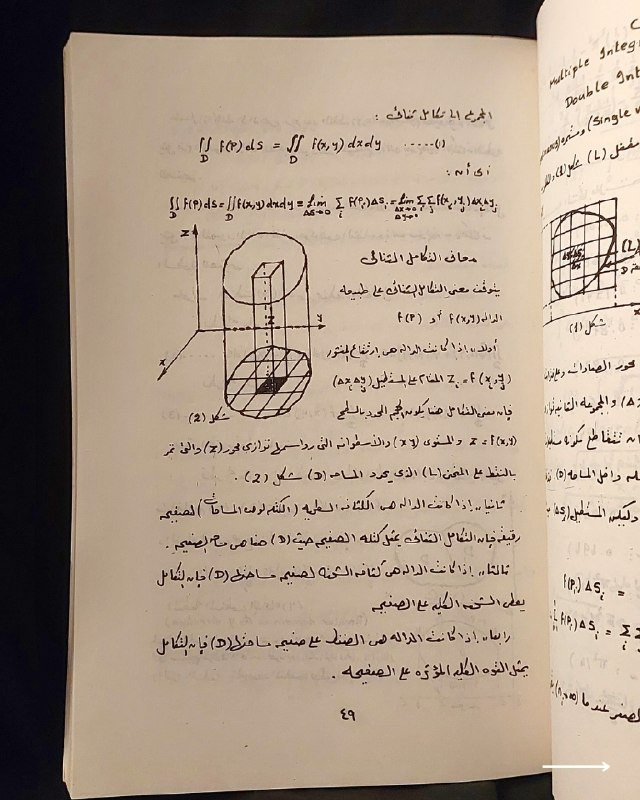 المجموع الى تكامل ثنائى :
∬_D f(P) dS = ∬_D f(x,y) dx dy ......(١)
أى أنه :
∬_D f(P) dS = ∬_D f(x,y) dx dy = lim_{ΔS→0} Σ_i f(P_i) ΔS_i = lim_{Δx→0 Δy→0} Σ_i Σ_j f(x_i, y_j) Δx_i Δy_j
معانى التكامل الثنائى
يتوقف معنى التكامل الثنائى على طبيعة
الداله f(x,y) أو f(P)
أولا: إذا كانت الداله هى إرتفاع المنشور
Z_i = f(x_i, y_j) المقام على المستطيل (Δx_i Δy_j)
فإن معنى التكامل هنا يكون الحجم المحدود بالسطح
z = f(x,y) والمستوى (xy) والأسطوانه التى رواسمها توازى محور (z) والتى تمر
بالنقط على المنحنى (L) الذى يحدد المساحه (D) شكل (2) .
z
Z
y
x
شكل (2)
ثانيا: إذا كانت الداله هى الكثافه السطحيه (الكتله لوحدة المساحات) لصفيحه
رقيقة فإن التكامل الثنائى يمثل كتلة الصفيحه حيث (D) هنا هى مساحة الصفيحه .
ثالثا: إذا كانت الداله هى كثافة الشحنه لصفيحه مساحتها (D) فإن التكامل
يعطى الشحنه الكليه على الصفيحه
رابعا: إذا كانت الداله هى الضغط على صفيحه مساحتها (D) فإن التكامل
يمثل القوه الكليه المؤثره على الصفيحه .
٤٩
Multiple Integ
Double Int
(Single v
(L) شكل (1)
(L)
شكل (1)
محور الصادات
والمجموعه الثانيه
داخل المساحه (D)
المستطيل (ΔS
f(P_i) ΔS_i =
f(P_i) ΔS_i = Σ Σ
عندما